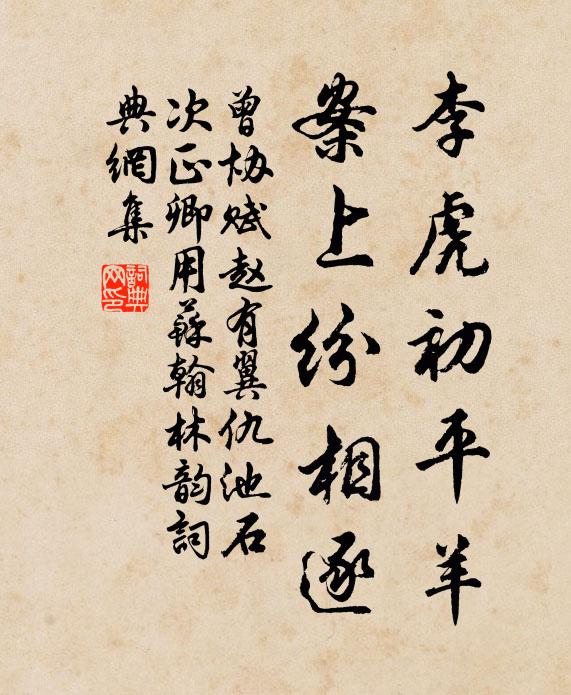 李虎初平羊
案上纷相逐
曾协赋赵有翼仇池石
次正卿用苏翰林韵词
典网集
词典网印